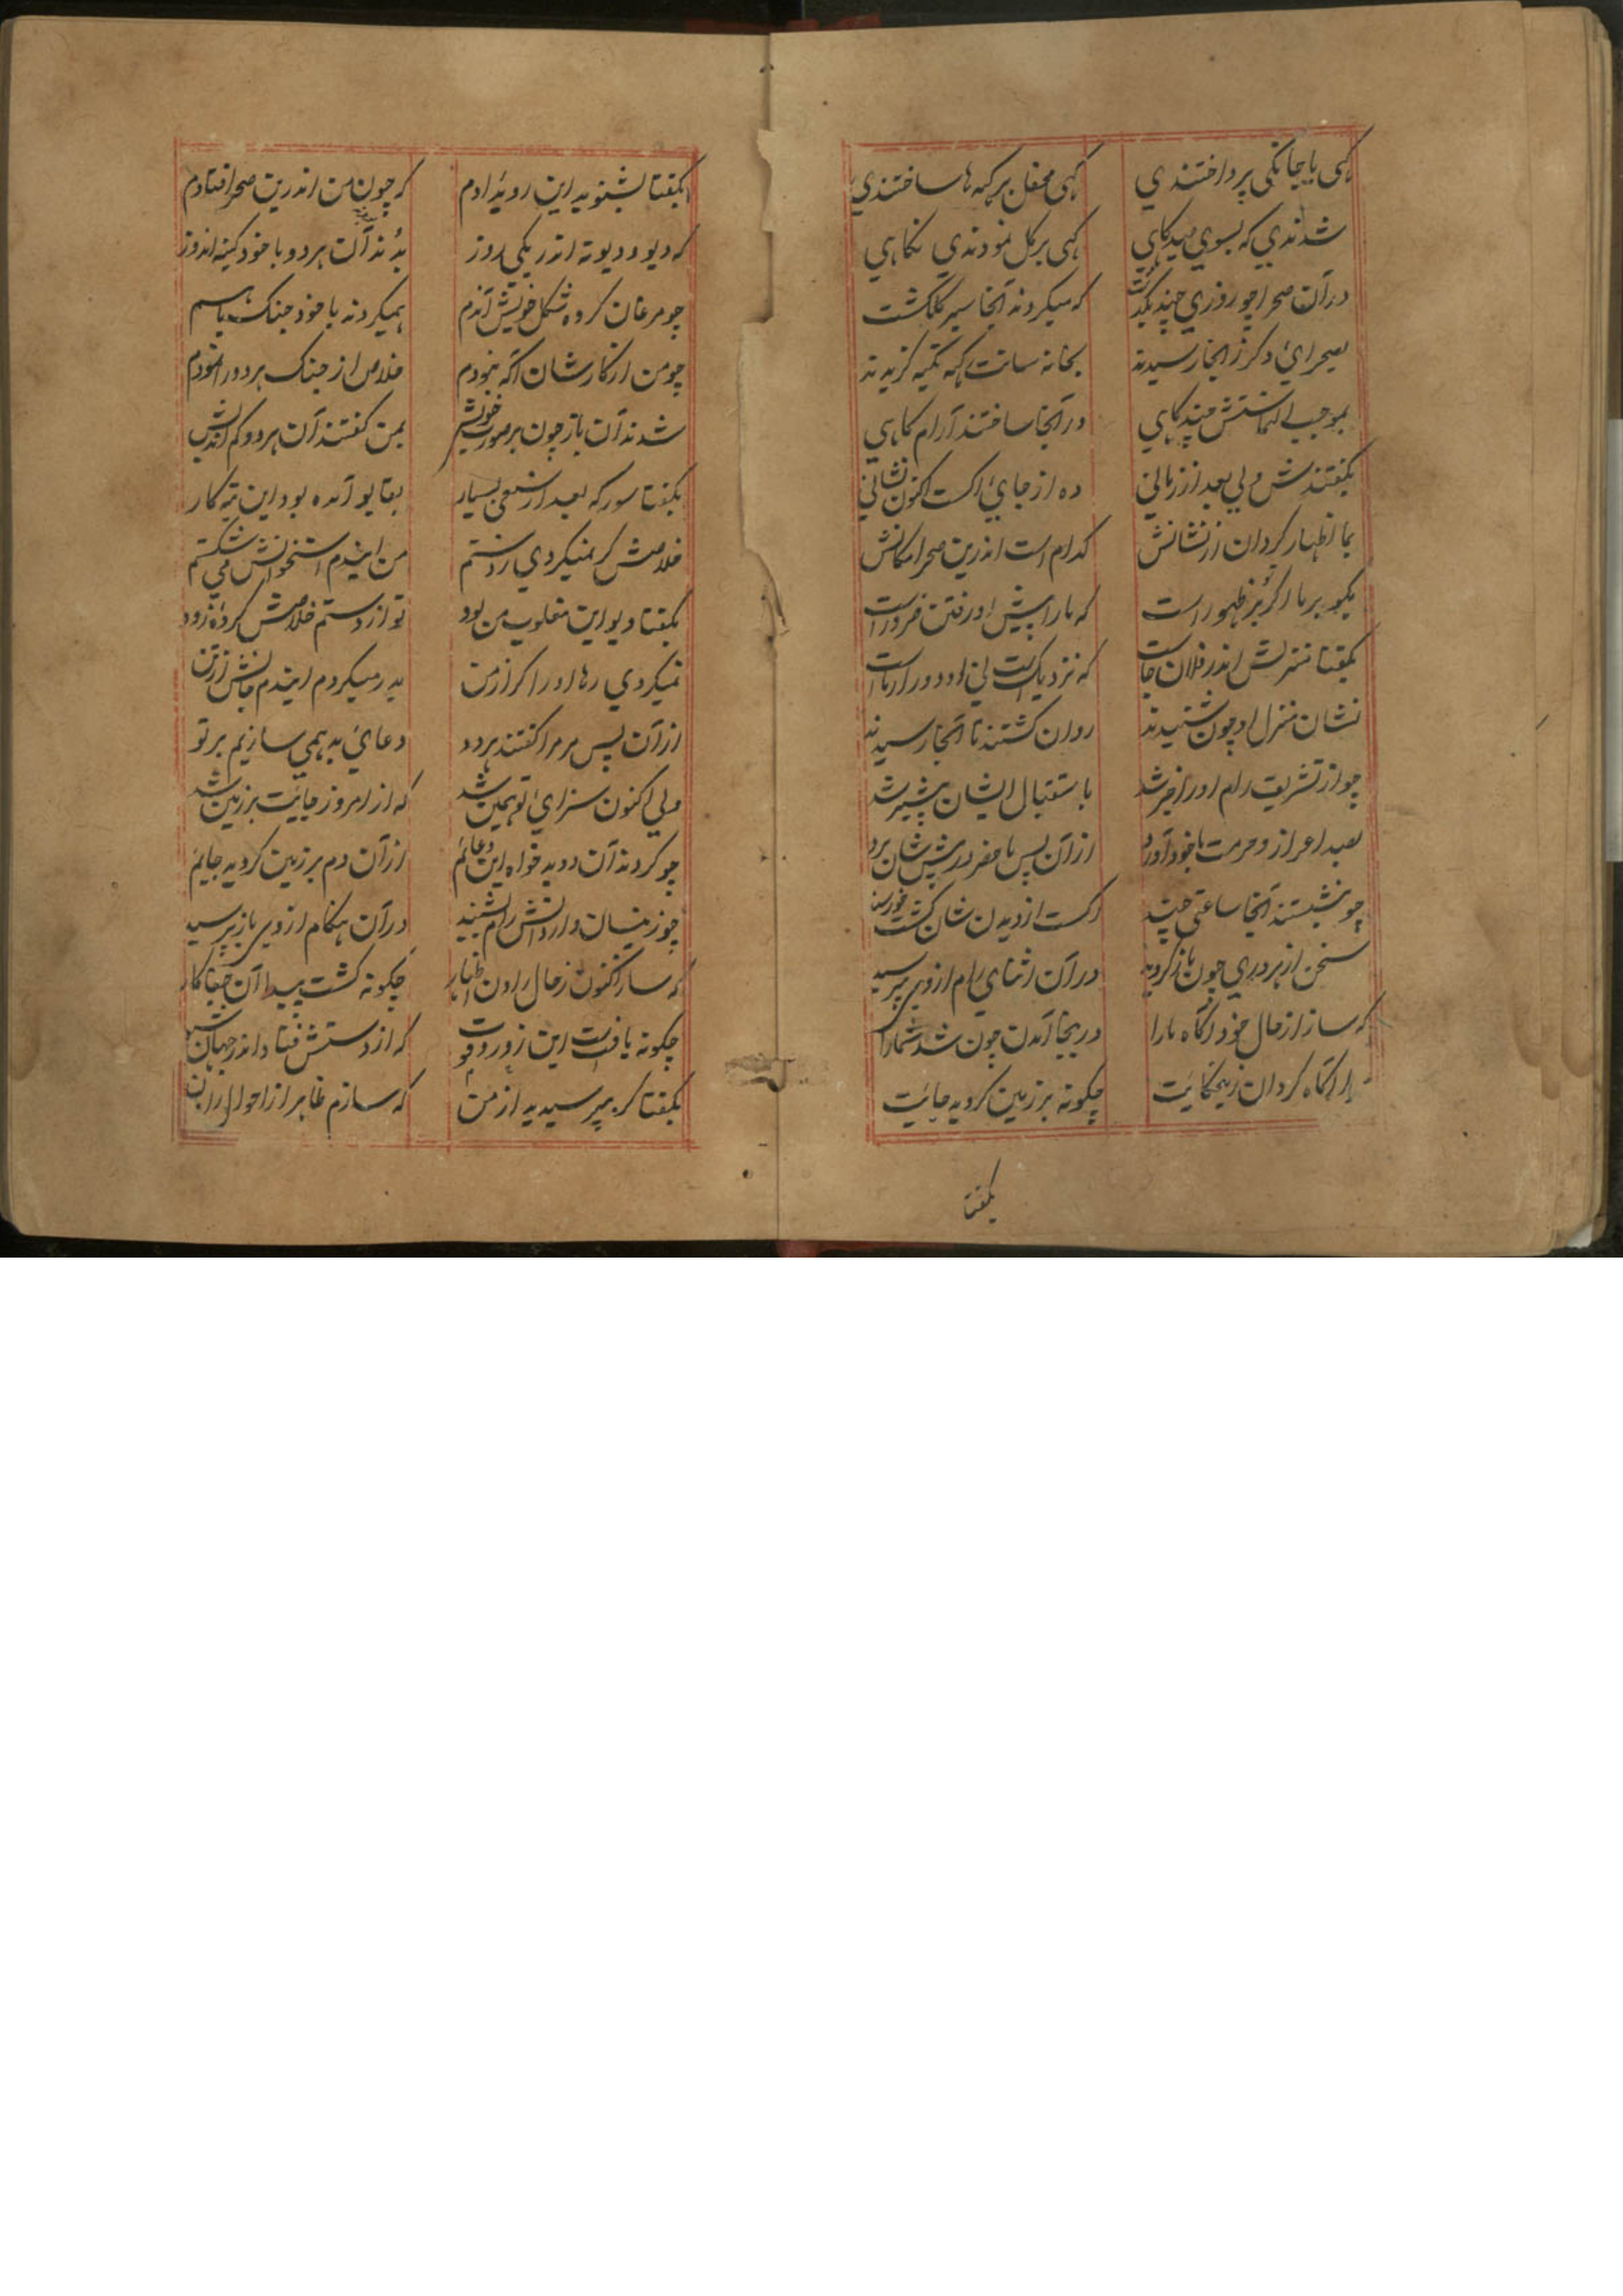 کهی با جانکی پرداختندی کهی محفل برکه ها ساختندی
شدندی که بسوی صیدکاهی کهی بر کل نمودندی نکاهی
در آن صحرا چو روزی چند بکذشت که میکردند آنجا سیر کلکشت
بصحرای دکر ز انجا رسیدند بخانه سانت که تکیه کزیدند
بموجب التماسش چند کاهی در آنجا ساختند آرام کاهی
بکفتندش ولی بعد از زمانی ده از جای اکست اکنون نشانی
بما اظهار کردان از نشانش کدام است اندرین صحرا مکانش
بکو بر ما کزو ظهور است که ما را پیش او رفتن ضرور است
بکفتا منزلش اندر فلان جاست که نزدیک است نی او دور از ماست
نشان منزل او چون شنیدند روان کشتند تا آنجا رسیدند
چو از تشریف رام او را خبر شد با ستقبال ایشان پیشتر شد
بصد اعزاز و حرمت با خود آورد از آن پس ما حضر در پیش شان برد
چو بنشستند آنجا ساعتی چند اکست از دیدن شان کشت خورسند
سخن از هر دری چون باز کردید در آن اثنای رام از وی بپرسید
که ساز از حال خود آکاه ما را در ینجا آمدن چون شد شما را
ما را آکاه کردان زین حکایت چکونه بر زمین کردید جایت
بکفتا
بکفتا بشنوید این رویدادم که چون من اندرین صحرا فتادم
که دیو و دیوته اندر یکی روز بدند آن هر دو با خود کینه اندوز
چو مرغان کرده شکل خویش آندم همیکردند با خود جنک باهم
چو من از کارشان آکه نبودم خلاص از جنک هر دو را نمودم
شدند آن باز چون بر صورت خویش بمن کفتند آن هر دو کم اندیش
بکفتا سور که بعد از سعی بسیار بقابو آمده بود این تبه کار
خلاصش کر نمیکردی ز دستم من ایندم استخوانش می شکستم
بکفتا دیو این مغلوب من بود تو از دستم خلاصش کرده زود
نمیکردی رها او را کر از من بدر میکردم ایندم جانش از تن
از آن پس مر مرا کفتند هر دو دعای بد همی سازیم بر تو
ولی اکنون سزای تو همین شد که از امروز جایت بر زمین شد
چو کردند آن دو بدخواه این دعایم از آن دم بر زمین کردید جایم
چو زینسان وارداتش رام بشنید در آن هنکام از وی باز پرسید
که ساز اکنون ز حال راون اظهار چکونه کشت پیدا آن جفا کار
چکونه یافت این زور و قوت که از دستش فتاد اندر جهان شور
بکفتا کر بپرسیدید از من که سازم ظاهر از احوال راون